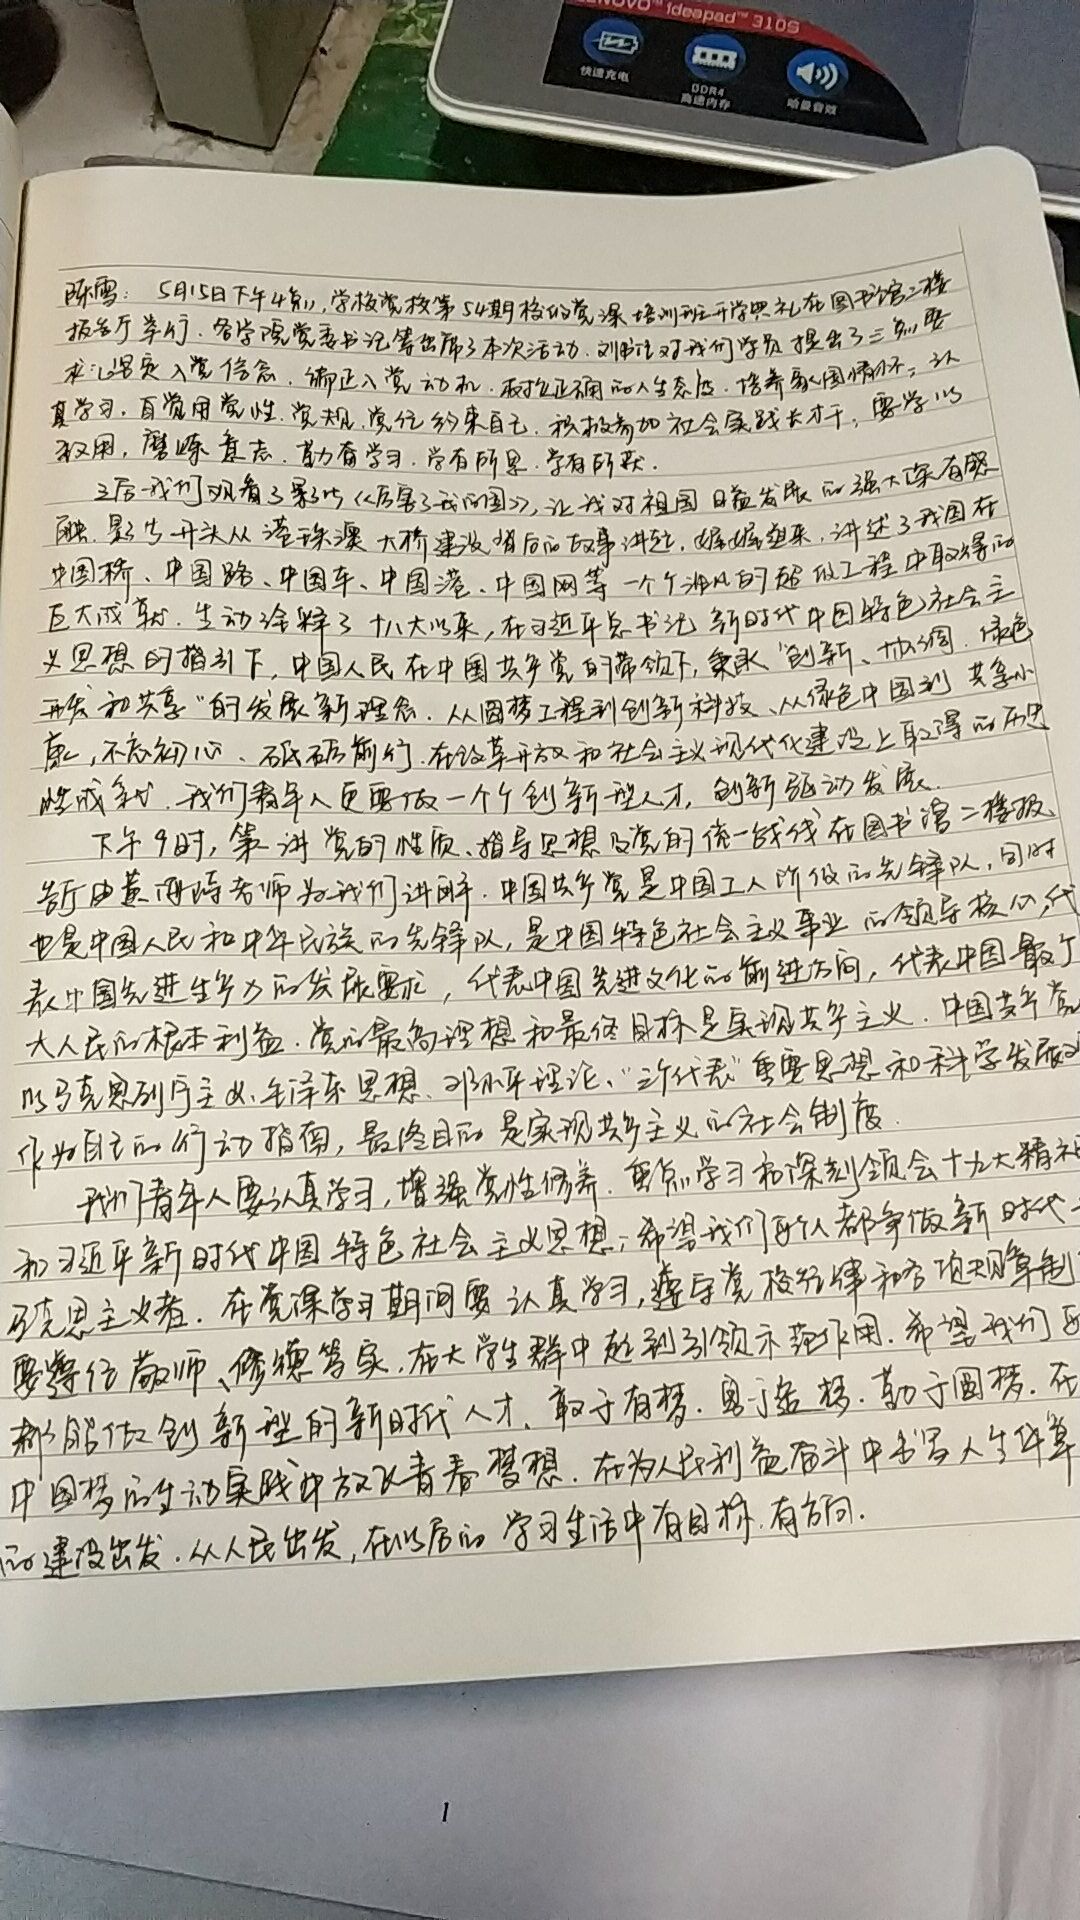 LENOVO™ ideapad™ 310S
快速充电
DDR4
高速内存
哈曼音效
陈雪: 5月15日下午4点,学校党校第54期校级党课培训班开学典礼在图书馆二楼
报告厅举行.各学院党委书记等出席了本次活动.刘书记对我们学员提出了三点要
求:坚定入党信念.端正入党动机.树立正确的人生态度.培养家国情怀;认
真学习.自觉用党性.党规.党纪约束自己.积极参加社会实践长才干;要学以
致用,磨练意志.勤奋学习.学有所思.学有所获.
之后我们观看了影片《厉害了我的国》,让我对祖国日益发展的强大深有感
触.影片开头从港珠澳大桥建设背后的故事讲起.娓娓道来.讲述了我国在
中国桥、中国路、中国车、中国港、中国网等一个个非凡的超级工程中取得的
巨大成就.生动诠释了十八大以来,在习近平总书记新时代中国特色社会主
义思想的指引下,中国人民在中国共产党的带领下,秉承"创新、协调.绿色
开发和共享"的发展新理念.从圆梦工程到创新科技、从绿色中国到共享小
康,不忘初心、砥砺前行.在改革开放和社会主义现代化建设上取得的历史
性成就.我们青年人更要做一个个创新型人才,创新驱动发展.
下午9时,第一讲党的性质、指导思想及党的统一战线在图书馆二楼报
告厅由黄老师为我们讲解.中国共产党是中国工人阶级的先锋队,同时
也是中国人民和中华民族的先锋队,是中国特色社会主义事业的领导核心,代
表中国先进生产力的发展要求,代表中国先进文化的前进方向,代表中国最广
大人民的根本利益.党的最高理想和最终目标是实现共产主义.中国共产党
以马克思列宁主义、毛泽东思想、邓小平理论、"三个代表"重要思想和科学发展
作为自己的行动指南,最终目的是实现共产主义的社会制度.
我们青年人要认真学习,增强党性修养.重点学习和深刻领会十九大精神
和习近平新时代中国特色社会主义思想;希望我们每个人都争做新时代
马克思主义者.在党课学习期间要认真学习,遵守党校纪律和各项规章制
要尊纪敬师、修德笃实.在大学生群中起到引领示范作用.希望我们
都能做创新型的新时代人才.敢于有梦.勇于追梦.勤于圆梦.在
中国梦的生动实践中放飞青春梦想.在为人民利益奋斗中书写人生华章
的建设出发.从人民出发,在以后的学习生活中有目标.有方向.
1